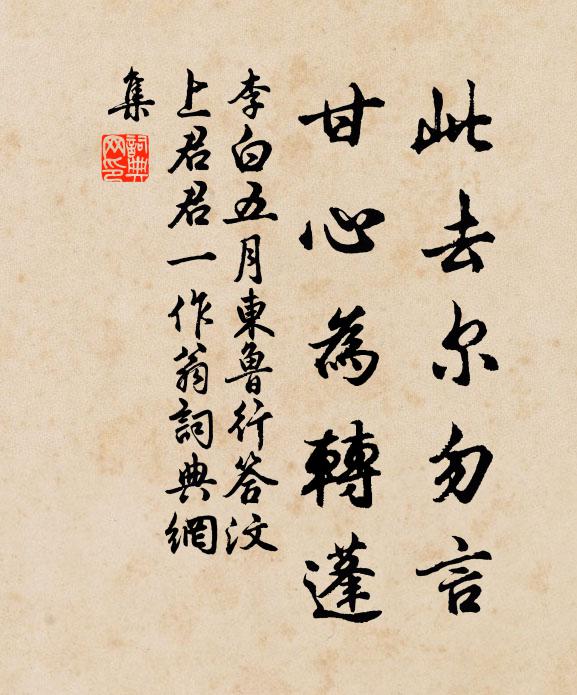 此去尔勿言
甘心為轉蓬
李白五月東魯行答汶
上君君一作翁詞典網
集
詞典
网印